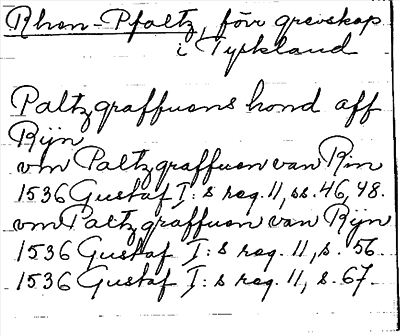 Rhen-Pfaltz, förr grevskap
i Tyskland
Paltzgraffuens hond aff
Rijn
vm Paltzgraffuen van Rin
1536 Gustaf I:s reg. 11, ss. 46, 48.
vm Paltzgraffuen van Rijn
1536 Gustaf I:s reg. 11, s. 56.
1536 Gustaf I:s reg. 11, s. 67.